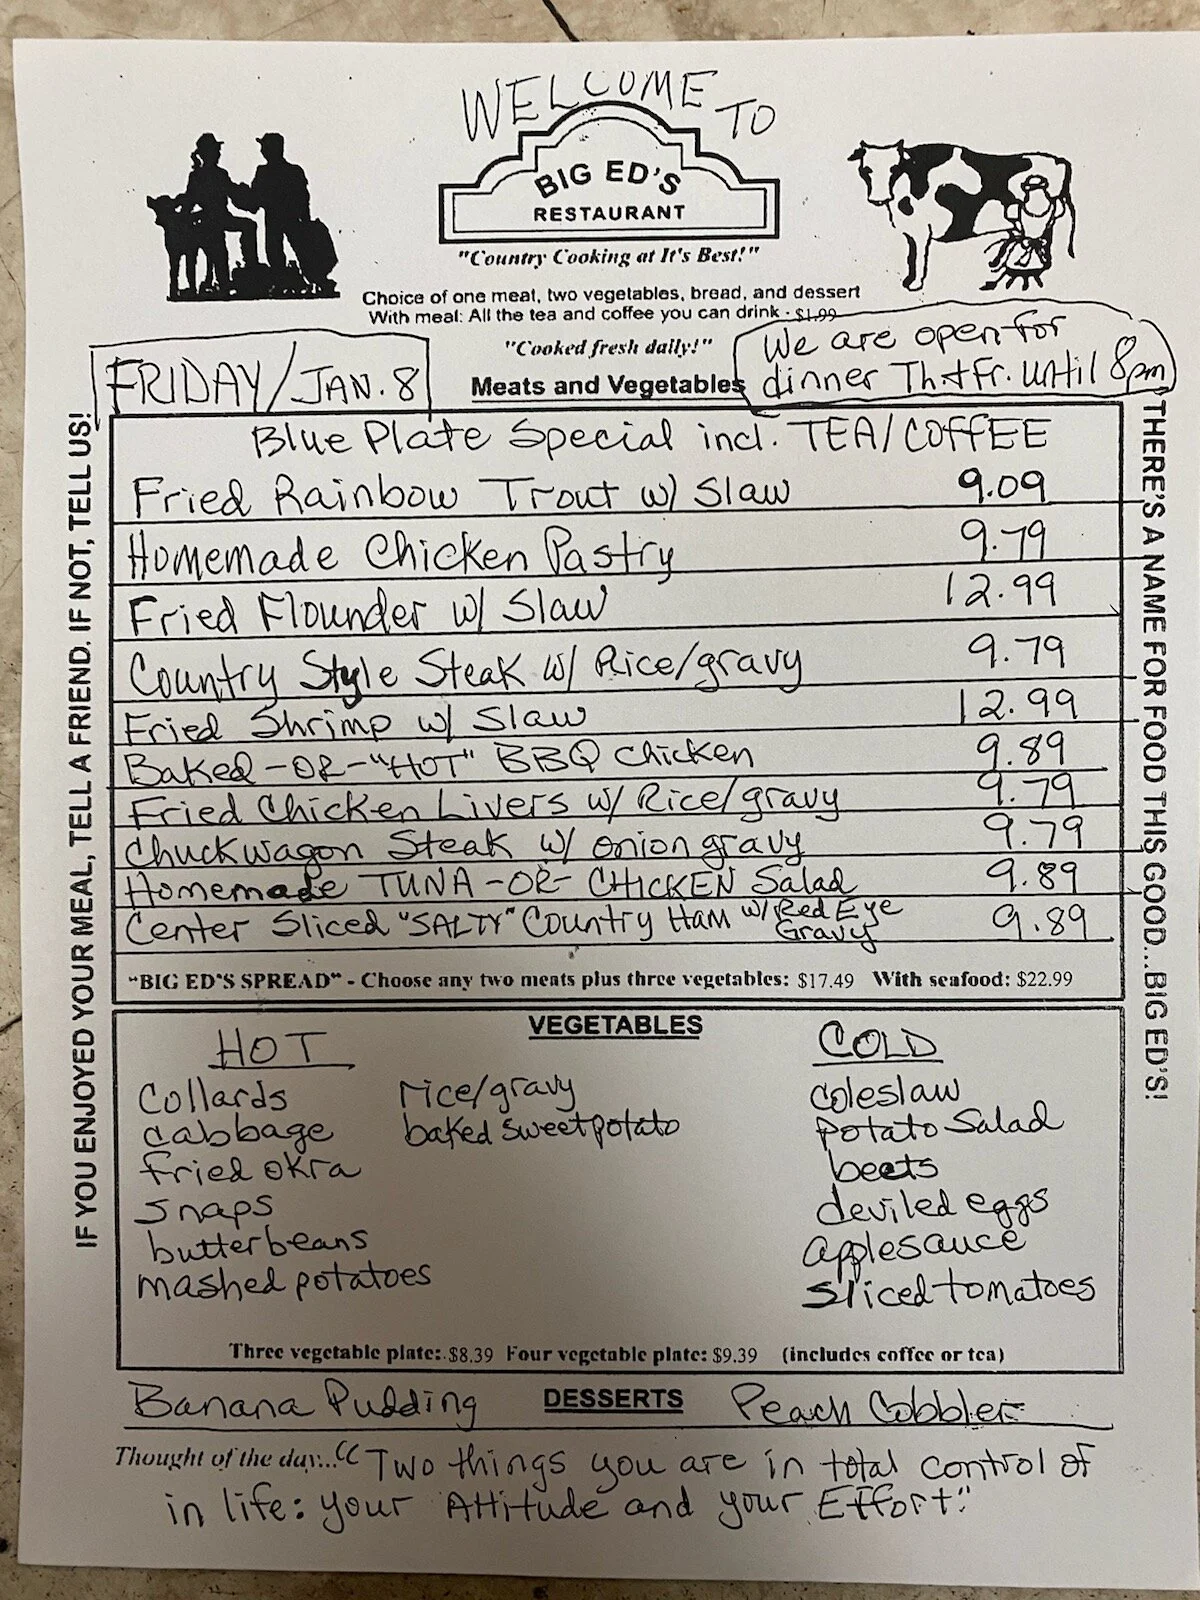 WELCOME TO
BIG ED'S
RESTAURANT
"Country Cooking at It's Best!"
Choice of one meat, two vegetables, bread, and dessert
With meal: All the tea and coffee you can drink - $1.99
"Cooked fresh daily!"
We are open for
dinner Th. + Fr. until 8pm
FRIDAY/JAN. 8
Meats and Vegetables
Blue Plate Special incl. TEA/COFFEE
Fried Rainbow Trout w/ Slaw 9.09
Homemade Chicken Pastry 9.79
Fried Flounder w/ Slaw 12.99
Country Style Steak w/ Rice/gravy 9.79
Fried Shrimp w/ Slaw 12.99
Baked -OR- "HOT" BBQ Chicken 9.89
Fried Chicken Livers w/ Rice/gravy 9.79
Chuckwagon Steak w/ onion gravy 9.79
Homemade TUNA -OR- CHICKEN Salad 9.89
Center Sliced "SALTY" Country Ham w/ Red Eye Gravy 9.89
"BIG ED'S SPREAD" - Choose any two meats plus three vegetables: $17.49 With seafood: $22.99
VEGETABLES
HOT
Collards
cabbage
fried okra
snaps
butterbeans
mashed potatoes
rice/gravy
baked sweet potato
COLD
coleslaw
potato Salad
beets
deviled eggs
applesauce
sliced tomatoes
Three vegetable plate: $8.39 Four vegetable plate: $9.39 (includes coffee or tea)
Banana Pudding DESSERTS Peach Cobbler
Thought of the day... "Two things you are in total control of
in life: your Attitude and your Effort."
IF YOU ENJOYED YOUR MEAL, TELL A FRIEND. IF NOT, TELL US!
THERE'S A NAME FOR FOOD THIS GOOD...BIG ED'S!